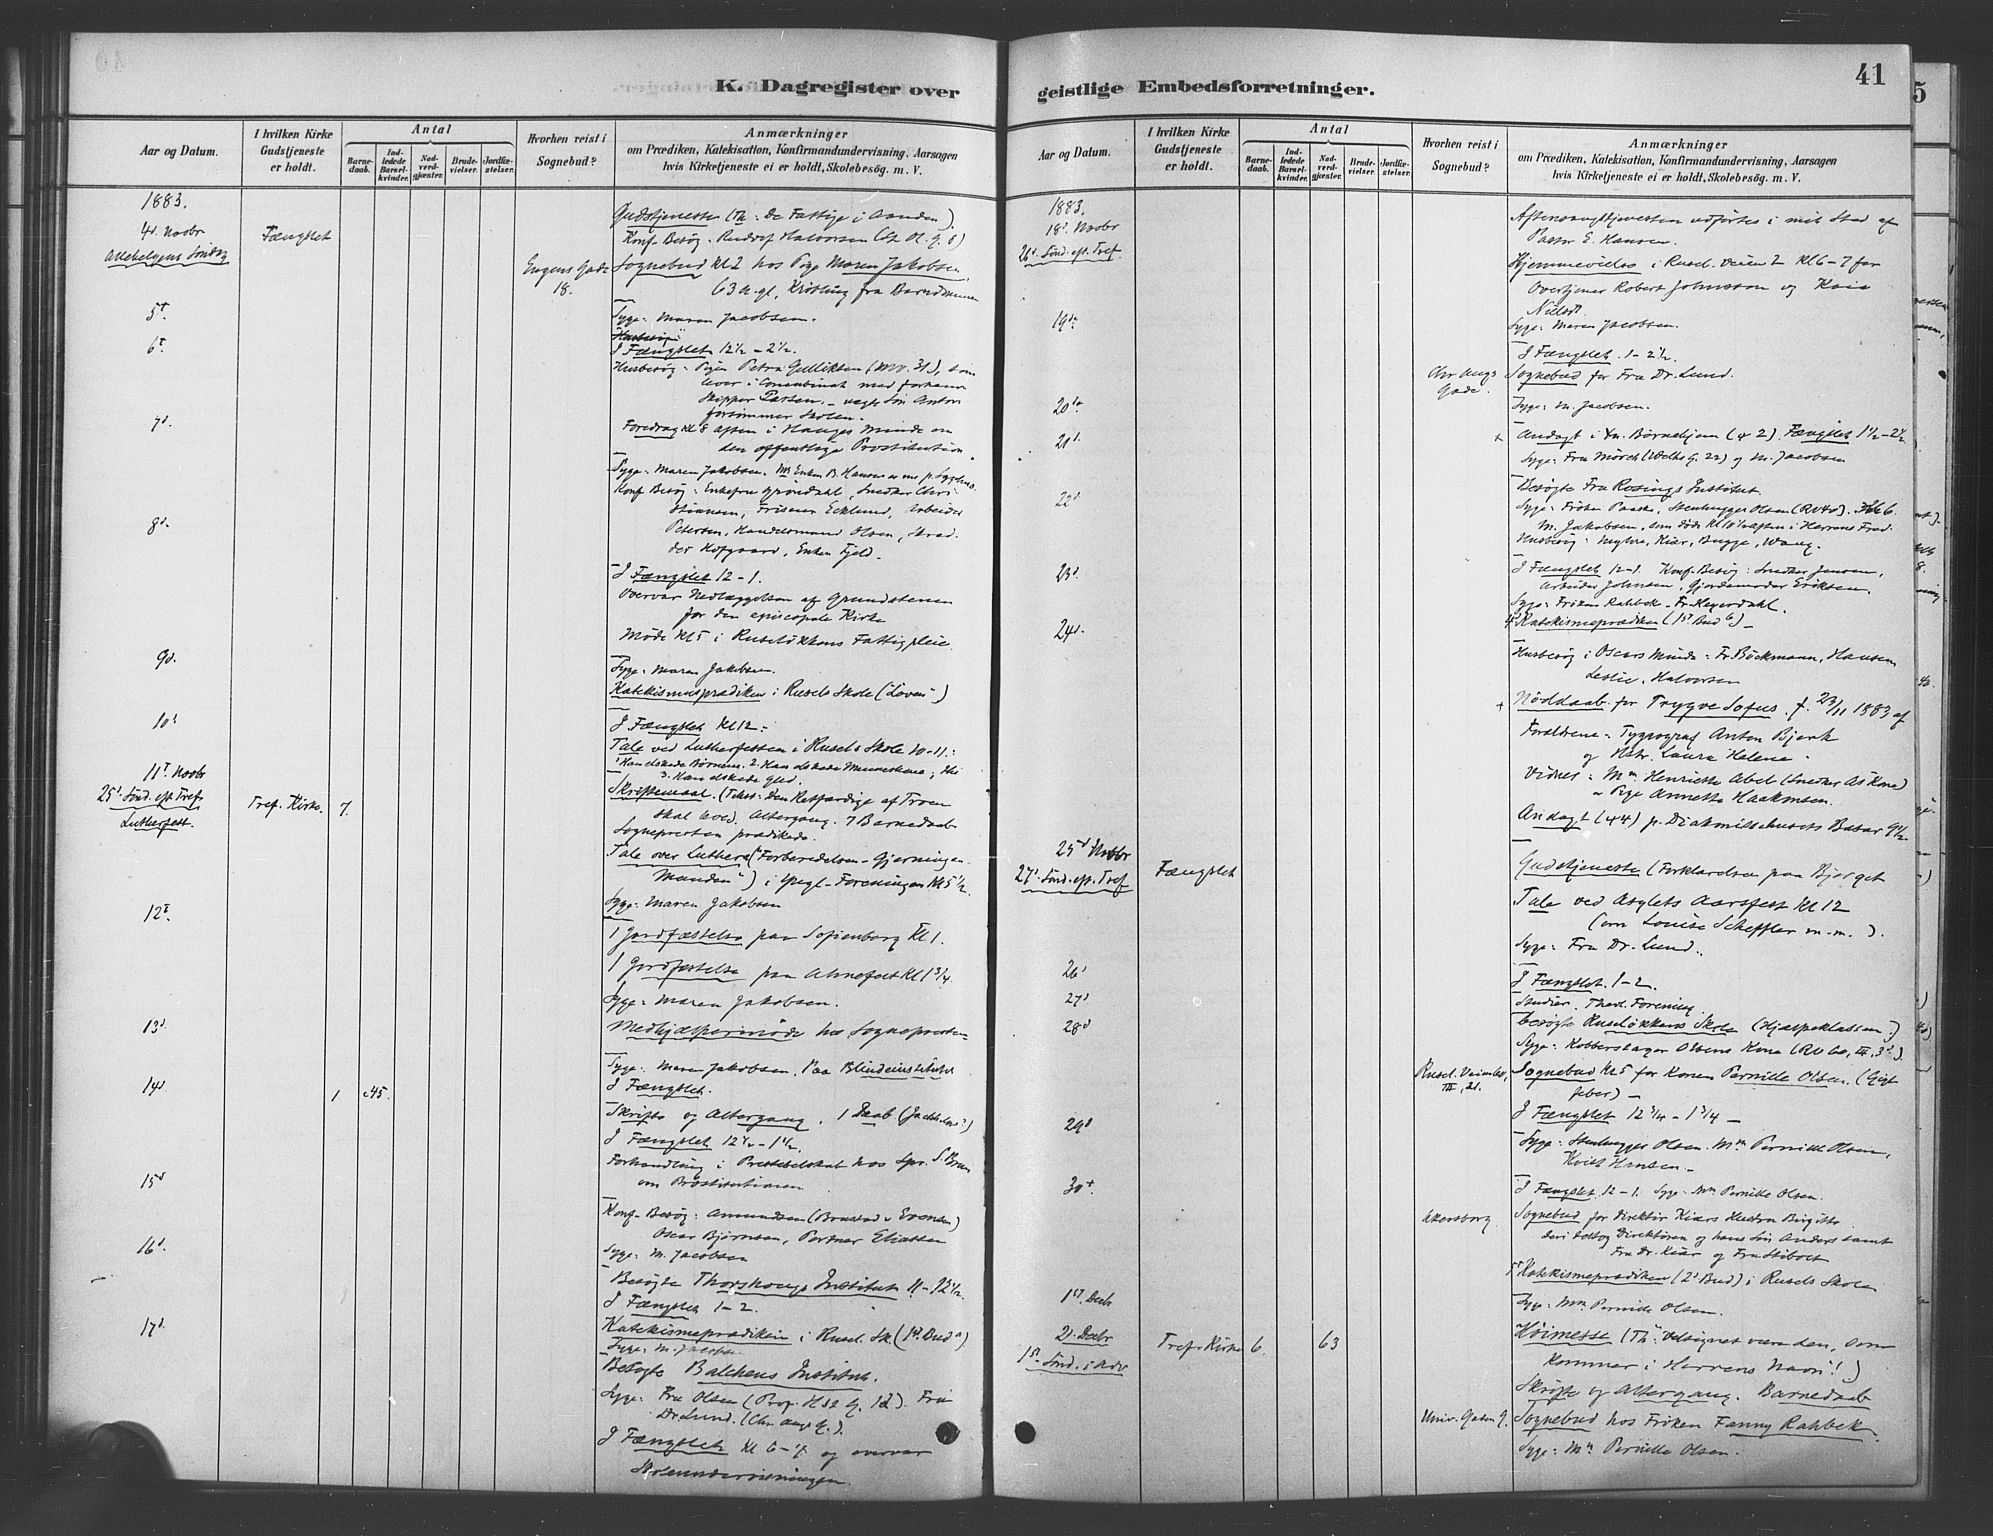 K. Dagregister over
Aar og Datum.
I hvilken Kirke Gudstjeneste er holdt.
Antal
Barnedaab.
Indledede Barselkvinder.
Nadverdgjæster.
Brudevielser.
Jordfæstelser.
Hvorhen reist i Sognebud?
Anmærkninger
om Prædiken, Katekisation, Konfirmandundervisning, Aarsagen
hvis Kirketjeneste ei er holdt, Skolebesøg. m. V.
1883.
4d. Novbr
Fængslet
Gudstjeneste (Th: De Fattige i Aanden).
Allehelgens Søndag
Konf. Besøg. Rudolf Halvorsen
18.
Sognebud Kl 2 hos Pige Maren Jakobsen,
63 A. gl,
5t.
Syge: Maren Jacobsen.
6t.
I Fængslet 12½ - 2½.
Husbesøg: Pigen Petra Gulliksen
Skipper Larsen
forsømmer Skolen.
7d.
Foredrag Kl 8 aften i Hauges Minde om
den offentlige Prostitution.
Syge: Maren Jakobsen.
Konf. Besøg: Enkefru Grøndahl, Snedker Chri-
stiansen, Friseur Ecklund, Arbeider
8d.
Petersen, Handelsmand Olsen, Skræd-
der Hofgaard, Enken Fjeld.
I Fængslet 12-1.
Overvar Nedlæggelsen af Grundstenen
for den episcopale Kirke
Møde Kl 5 i Ruseløkkens Fattigpleie.
9d.
Syge: Maren Jakobsen.
Katekismusprædiken i Rusels Skole ("Loven")
10d
I Fængslet Kl 12:
Tale ved Lutherfesten i Rusels Skole 10-11:
11t Novbr
25d. Sønd. ep. Tref
Tref. Kirke.
7.
Skriftemaal. (Tekst: Den Retfærdige af Troen
Lutherfest.
skal leve). Altergang. 7 Barnedaab
Sognepresten prædikede.
Tale over Luthers ("Forberedelsen - Gjerningen
Manden") i Foreningen Kl 5½.
Syge: Maren Jakobsen
12t.
1 Jordfæstelse paa Sofienberg Kl 1.
1 Jordfæstelse paa Kl 1¾.
Syge: Maren Jakobsen.
13d.
Medhjælpermøde hos Sognepresten
Syge: Maren Jakobsen. Paa Blindeinstitutet
14d
1
45.
I Fængslet.
Skrifte og Altergang. 1 Daab
I Fængslet 12½ - 1½.
Forhandling i Presteselskab hos Spr.
15d
om Prostitutionen
Konf. Besøg: Amundsen
Oscar Bjørnsen, Portner Eliassen
16d.
Syge: M. Jacobsen
Besøgte Thorshougs Institut 11 - 12½.
I Fængslet 1-2.
17d.
Katekismeprædiken i Rusel. Sk
Syge: M. Jacobsen
Besøgte Balchens Institut.
Syge: Fru Olsen Fru
Dr Lund. (Chr. Augs G.).
I Fængslet Kl 6-7 og overvar
Skoleundervisningen
geistlige Embedsforretninger.
41
Aar og Datum.
I hvilken Kirke Gudstjeneste er holdt.
Antal
Barnedaab.
Indledede Barselkvinder.
Nadverdgjæster.
Brudevielser.
Jordfæstelser.
Hvorhen reist i Sognebud?
Anmærkninger
om Prædiken, Katekisation, Konfirmandundervisning, Aarsagen
hvis Kirketjeneste ei er holdt, Skolebesøg. m. V.
1883.
18d. Novbr
Aftensangstjenesten udførtes i mit Sted af
26d. Sønd. ep. Tref
Pastor E. Hansen.
Hjemmevielse i Rusel. Veien 2 Kl 6-7 for
Overtjener Robert Johnsson og
19de
Syge: Maren Jacobsen.
I Fængslet. 1-2½.
Chr Augs Gade.
Sognebud for Fru Dr. Lund.
20de
Syge: M. Jacobsen.
21d.
Andagt i Børnehjem (4 2) Fængslet 1½-2½
Syge: Fru Mørch (Welhs G. 22) og M. Jacobsen
22d
Besøgte Fru Rosings Institut.
Syge: Frøken Paaske, Stenhugger Olsen (RV40). Kl 6
M. Jakobsen, som døde Kl 10½ aften i Herrens Fred.
Husbesøg: Myhre, Kiær, Bugge, Wang.
23d.
I Fængslet 12-1. Konf. Besøg: Snedker Jensen,
Arbeider Johnsen, Gjordemoder Eriksen.
Syge: Frøken Rahbek - Fr Heyerdahl.
24d.
Katekismeprædiken (1st Bud b) -
Husbesøg i Oscars Minde: Fr. Böckmann, Hansen
Leslie, Halvorsen
Nøddaab for Trygve Sofus. f. 23/11 1883 af
Forældrene: Typograf Anton Bjerk
og Hstr. Laura Helene.
Vidner: Mm Henriette Abel
Pige Annette Haakonsen.
Andagt (44) p. Diakonissehusets Basar 9½
25d Novbr
27d. Sønd. ep. Tref
Fængslet
Gudstjeneste (Forklarelsen paa Bjerget
Tale ved Asylets Aarsfest Kl 12
(om Louise Scheffler m. m.).
Syge: Fru Dr. Lund.
26d
I Fængslet. 1-2.
27d
Studier. Theol. Forening
28d
Besøgte Ruseløkkens Skole (Hjælpeklassen.)
Syge: Kobberslager Olsens Kone (RV 60, III, 3d).
Rusel. Veien 60, III, 21.
Sognebud Kl 5 for Konen Pernille Olsen. (Gigt
feber) -
I Fængslet 12¾ - 1¾ -
29d
Syge: Stenhugger Olsen. Mm Pernille Olsen,
30t.
I Fængslet. 12-1. Syge: Mm Pernille Olsen.
Akersborg.
Sognebud for Direktør Kiærs Hustru Birgitte.
deri deltog Direktøren og hans Søn Anders samt
Fru Dr. Kiær og Fru Stibolt
Katekismeprædiken (2d Bud) i Rusels Skole
1st. Decbr
Syge: Mm Pernille Olsen.
2d. Decbr
Tref. Kirke
6.
63
Høimesse (Th: Velsignet være den, som
1st Sønd. i Adv
kommer i Herrens Navn!)
Skrifte og Altergang. Barnedaab
Univ. Gaden 9.
Sognebud hos Frøken Fanny Rahbek.
Syge: Mm Pernille Olsen.